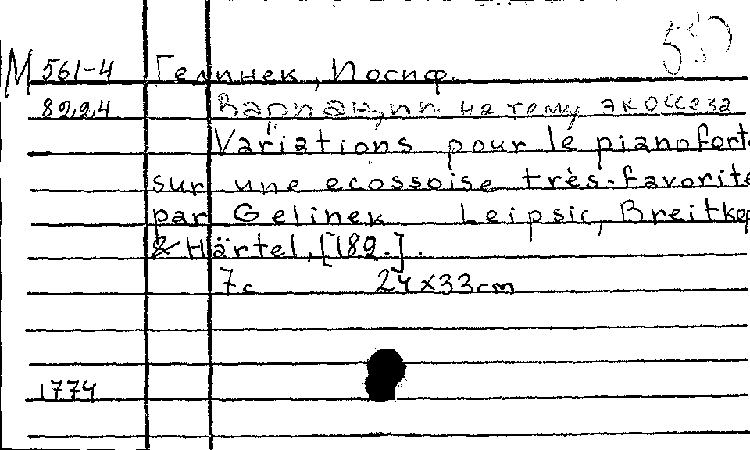 М 561-4 Гелинек, Иосиф.
8224 Вариации на тему экоссеза
Variations pour le pianofort
sur une ecossoise très-favorite
par Gelinek Leipsic, Breitkop
& Härtel, [182.].
7с 24x33cm
1774